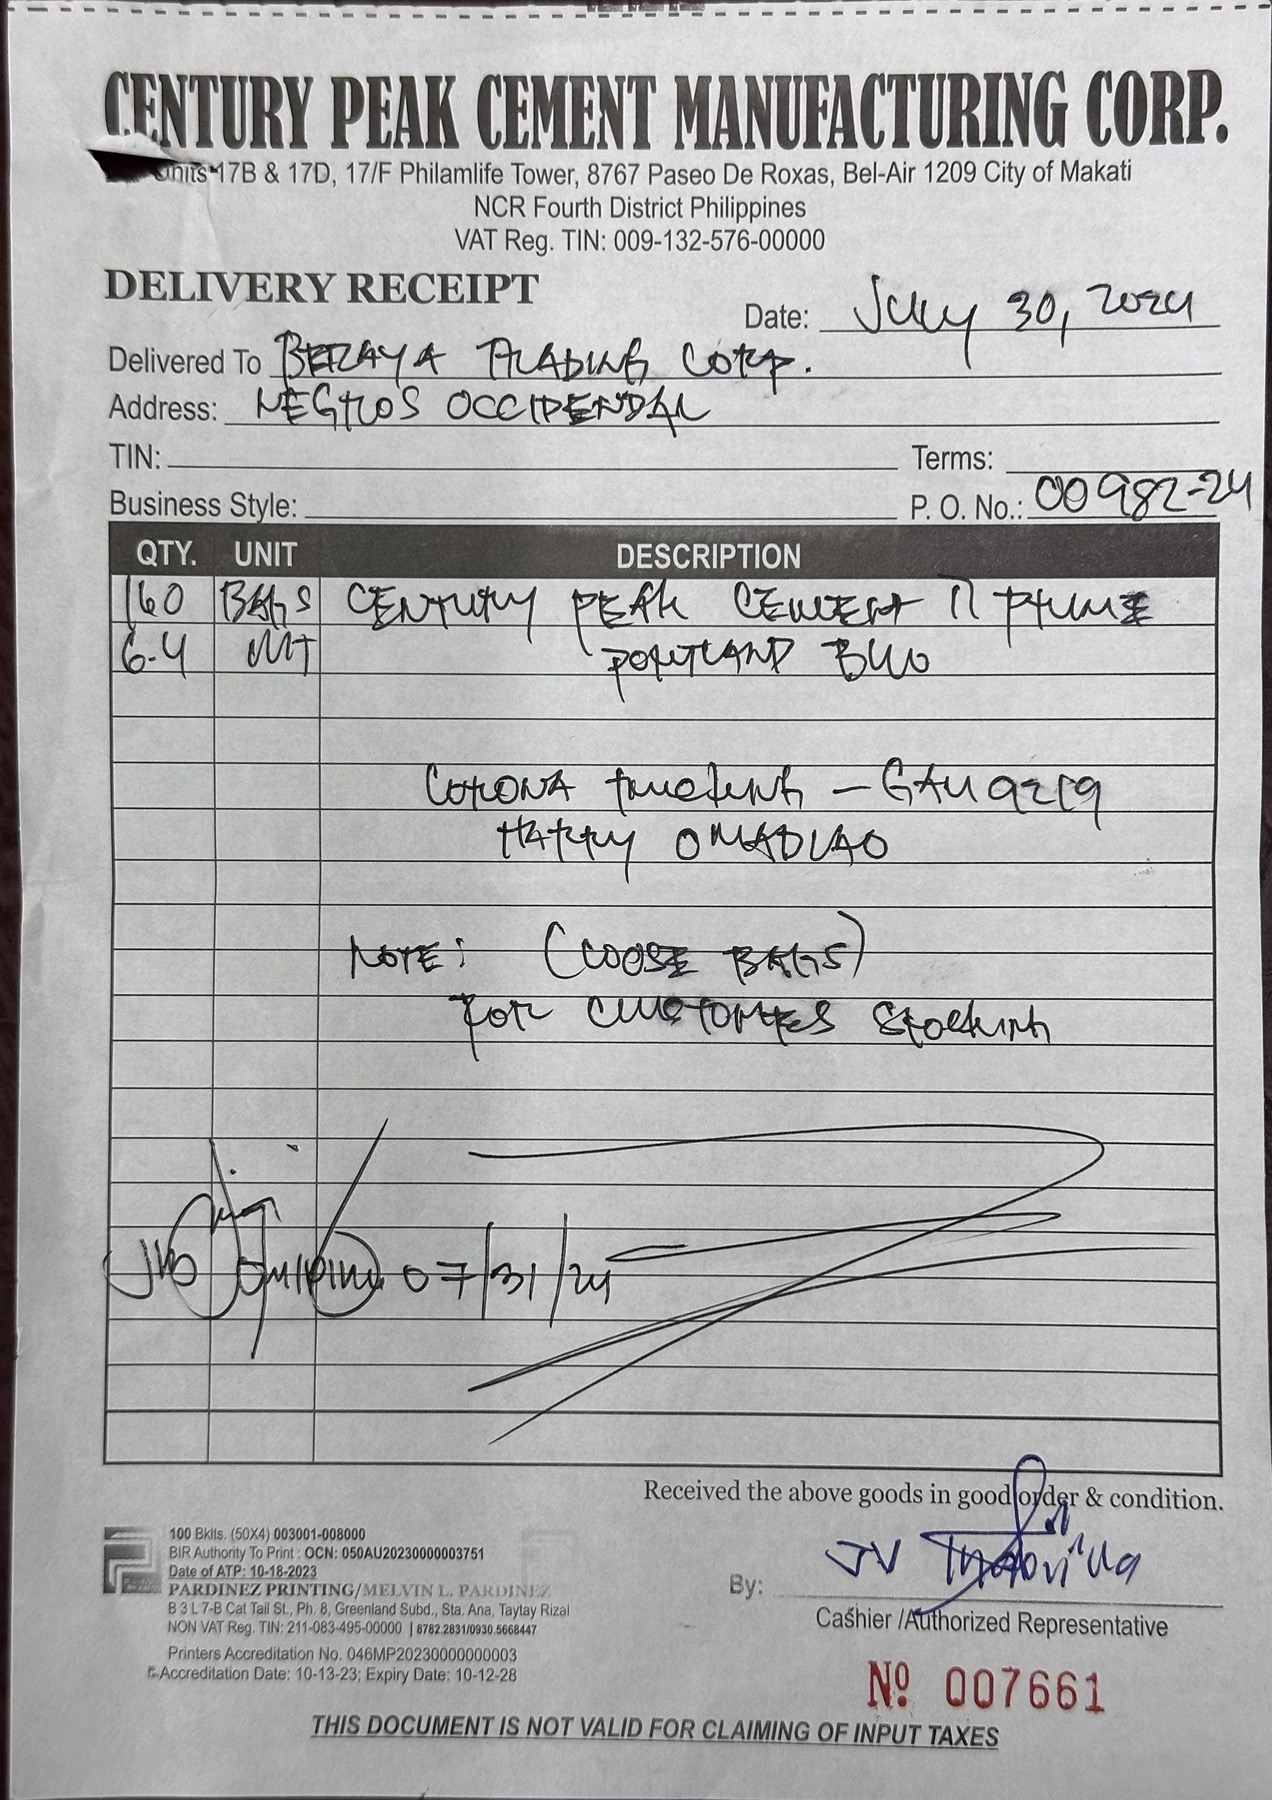 CENTURY PEAK CEMENT MANUFACTURING CORP.
Units 17B & 17D, 17/F Philamlife Tower, 8767 Paseo De Roxas, Bel-Air 1209 City of Makati
NCR Fourth District Philippines
VAT Reg. TIN: 009-132-576-00000
DELIVERY RECEIPT
Date: July 30, 2024
Delivered To BERAYA TRADING CORP.
Address: NEGROS OCCIDENDAL
TIN: Terms:
Business Style: P. O. No.: 00982-24
QTY. UNIT DESCRIPTION
160 BAGS CENTURY PEAK CEMENT II PRIME
6.4 MT PORTLAND BUO
CORONA Trucking - GAU 9219
HARRY OMADLAO
NOTE: (LOOSE BAGS)
FOR CUSTOMERS Stocking
07/31/24
Received the above goods in good order & condition.
100 Bklts. (50X4) 003001-008000
BIR Authority To Print : OCN: 050AU20230000003751
Date of ATP: 10-18-2023
PARDINEZ PRINTING/MELVIN L. PARDINEZ
B 3 L 7-B Cat Tail St., Ph. 8, Greenland Subd., Sta. Ana, Taytay Rizal
NON VAT Reg. TIN: 211-083-495-00000 | 8782.2831/0930.5668447
Printers Accreditation No. 046MP20230000000003
Accreditation Date: 10-13-23; Expiry Date: 10-12-28
By: JV
Cashier /Authorized Representative
Nº 007661
THIS DOCUMENT IS NOT VALID FOR CLAIMING OF INPUT TAXES